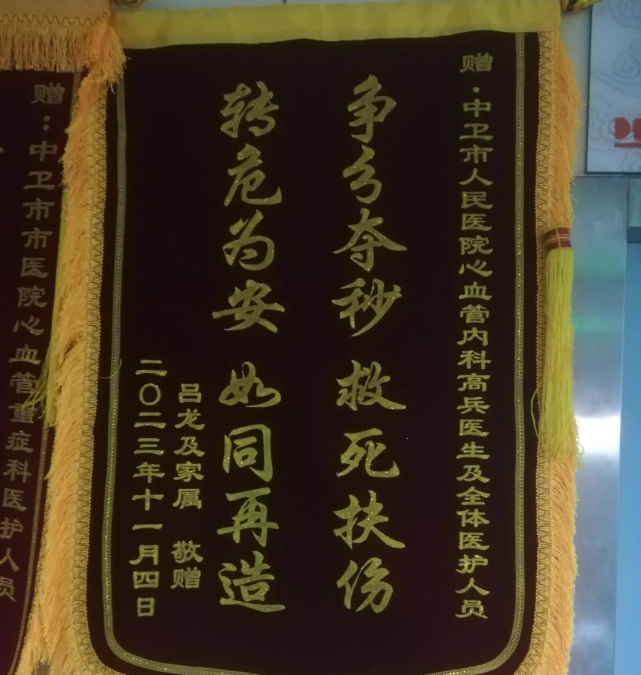 赠·中卫市人民医院心血管内科高兵医生及全体医护人员
争分夺秒 救死扶伤
转危为安 如同再造
吕龙及家属 敬赠
二〇二三年十一月四日
赠:中卫市市医院心血管重症科医护人员